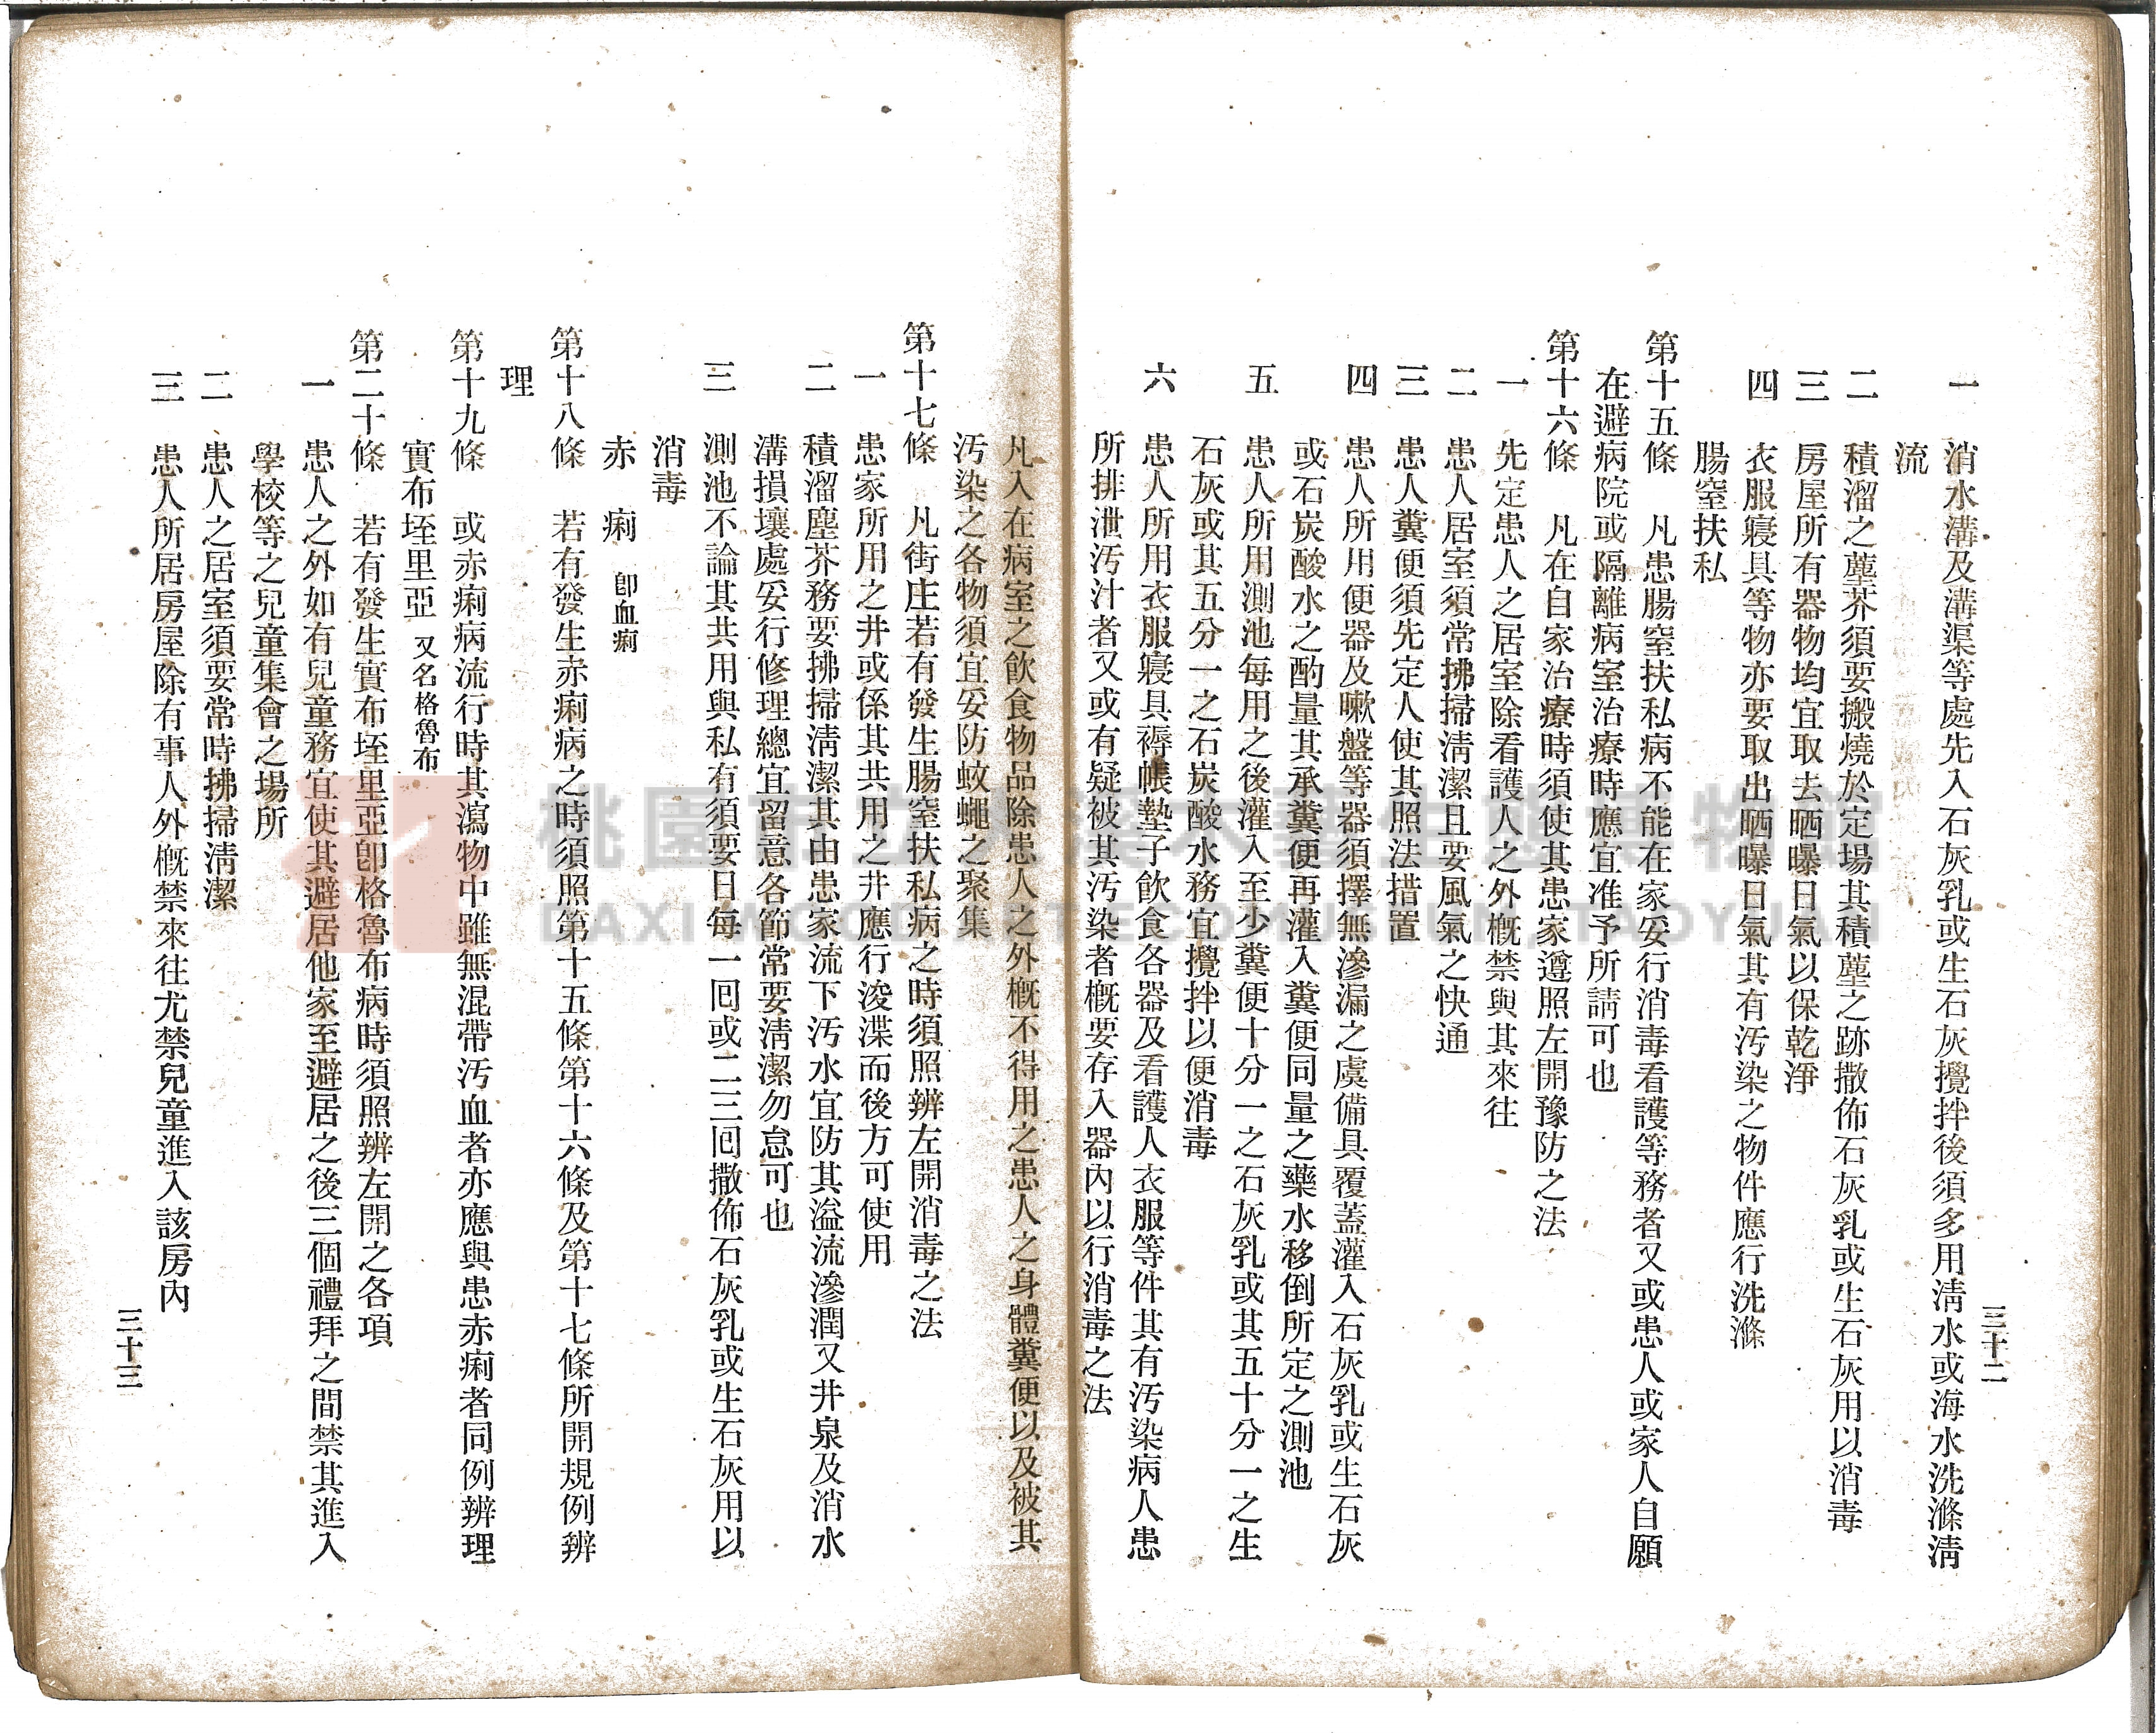 三十二
一　消水溝及溝渠等處先入石灰乳或生石灰攪拌後須多用淸水或海水洗滌淸
流
二　積溜之塵芥須要搬燒於定場其積塵之跡撒佈石灰乳或生石灰用以消毒
三　房屋所有器物均宜取去晒曝日氣以保乾淨
四　衣服寢具等物亦要取出晒曝日氣其有汚染之物件應行洗滌
腸窒扶私
第十五條　凡患腸窒扶私病不能在家妥行消毒看護等務者又或患人或家人自願
在避病院或隔離病室治療時應宜准予所請可也
第十六條　凡在自家治療時須使其患家遵照左開豫防之法
一　先定患人之居室除看護人之外概禁與其來往
二　患人居室須常拂掃淸潔且要風氣之快通
三　患人糞便須先定人使其照法措置
四　患人所用便器及嗽盤等器須擇無滲漏之虞備具覆蓋灌入石灰乳或生石灰
或石炭酸水之酌量其承糞便再灌入糞便同量之藥水移倒所定之測池
五　患人所用測池每用之後灌入至少糞便十分一之石灰乳或其五十分一之生
石灰或其五分一之石炭酸水務宜攪拌以便消毒
六　患人所用衣服寢具褥帳墊子飮食各器及看護人衣服等件其有汚染病人患
所排泄汚汁者又或有疑被其汚染者概要存入器內以行消毒之法
凡入在病室之飮食物品除患人之外概不得用之患人之身體糞便以及被其
汚染之各物須宜妥防蚊蠅之聚集
第十七條　凡街庄若有發生腸窒扶私病之時須照辨左開消毒之法
一　患家所用之井或係其共用之井應行浚渫而後方可使用
二　積溜塵芥務要拂掃淸潔其由患家流下汚水宜防其溢流滲潤又井泉及消水
溝損壤處妥行修理總宜留意各節常要淸潔勿怠可也
三　測池不論其共用與私有須要日每一回或二三回撒佈石灰乳或生石灰用以
消毒
赤　痢　卽血痢
第十八條　若有發生赤痢病之時須照第十五條第十六條及第十七條所開規例辨
理
第十九條　或赤痢病流行時其瀉物中雖無混帶汚血者亦應與患赤痢者同例辨理
實布垤里亞　又名格魯布
第二十條　若有發生實布垤里亞卽格魯布病時須照辨左開之各項
一　患人之外如有兒童務宜使其避居他家至避居之後三個禮拜之間禁其進入
學校等之兒童集會之場所
二　患人之居室須要常時拂掃淸潔
三　患人所居房屋除有事人外概禁來往尤禁兒童進入該房內
三十三
桃園市立大溪木藝生態博物館
DAXI WOOD ART ECOMUSEUM, TAOYUAN